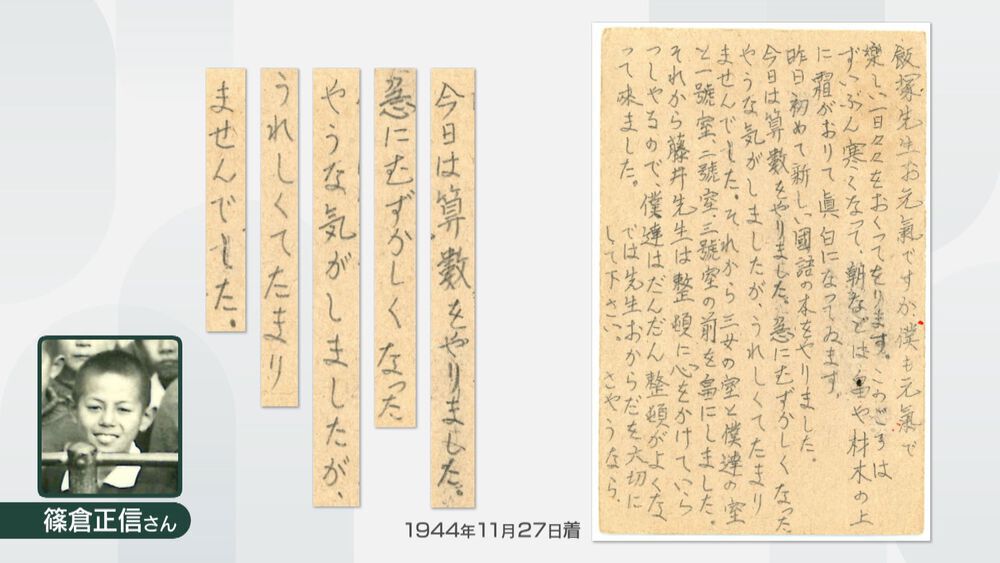 今日は算数をやりました。
急にむずかしくなった
やうな気がしましたが、
うれしくてたまり
ませんでした。
飯塚先生お元氣ですか僕も元氣で
樂しい一日々々をおくってをります。このごろは
ずゐぶん寒くなって、朝などは畠や材木の上
に霜がおりて眞白になってゐます。
昨日初めて新しい國語の本をやりました。
今日は算数をやりました。急にむずかしくなった
やうな気がしましたが、うれしくてたまり
ませんでした。それから三女の室と僕達の室
と一號室、二號室、三號室の前を畠にしました。
それから藤井先生は整頓に心をかけていら
っしやるので、僕達はだんだん整頓がよくな
って來ました。では先生おからだを大切に
して下さい。さやうなら
篠倉正信さん
1944年11月27日着